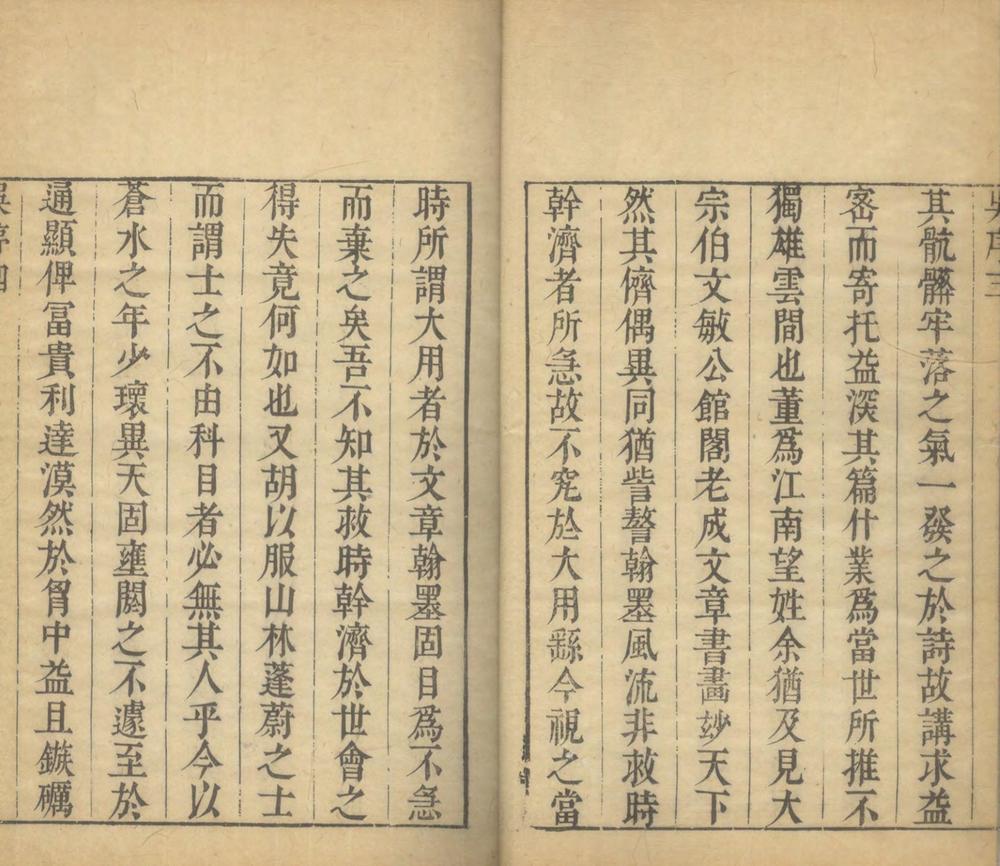 吳序三
其骯髒牢落之氣一發之於詩故講求益
密而寄托益深其篇什業爲當世所推不
獨雄雲間也董爲江南望姓余猶及見大
宗伯文敏公館閣老成文章書畵玅天下
然其儕偶異同猶訾謷翰墨風流非救時
幹濟者所急故不究於大用繇今視之當
時所謂大用者於文章翰墨固目爲不急
而棄之矣吾不知其救時幹濟於世會之
得失竟何如也又胡以服山林蓬蔚之士
而謂士之不由科目者必無其人乎今以
蒼水之年少瓌異天固壅閼之不遽至於
通顯俾冨貴利達漠然於胷中益且鏃礪
吳序四